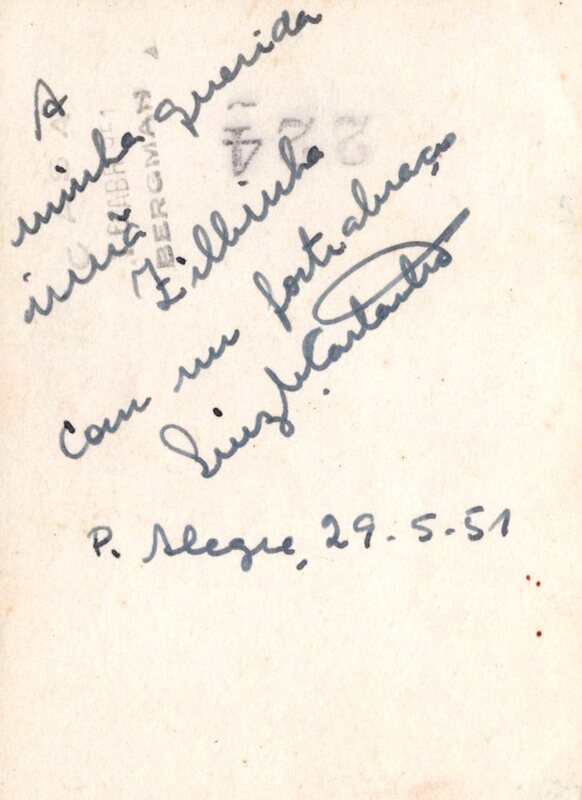 A
minha querida
irmã
Zilbinha
com um forte abraço
Luiz
P. Alegre, 29-5-51
BERGMAN